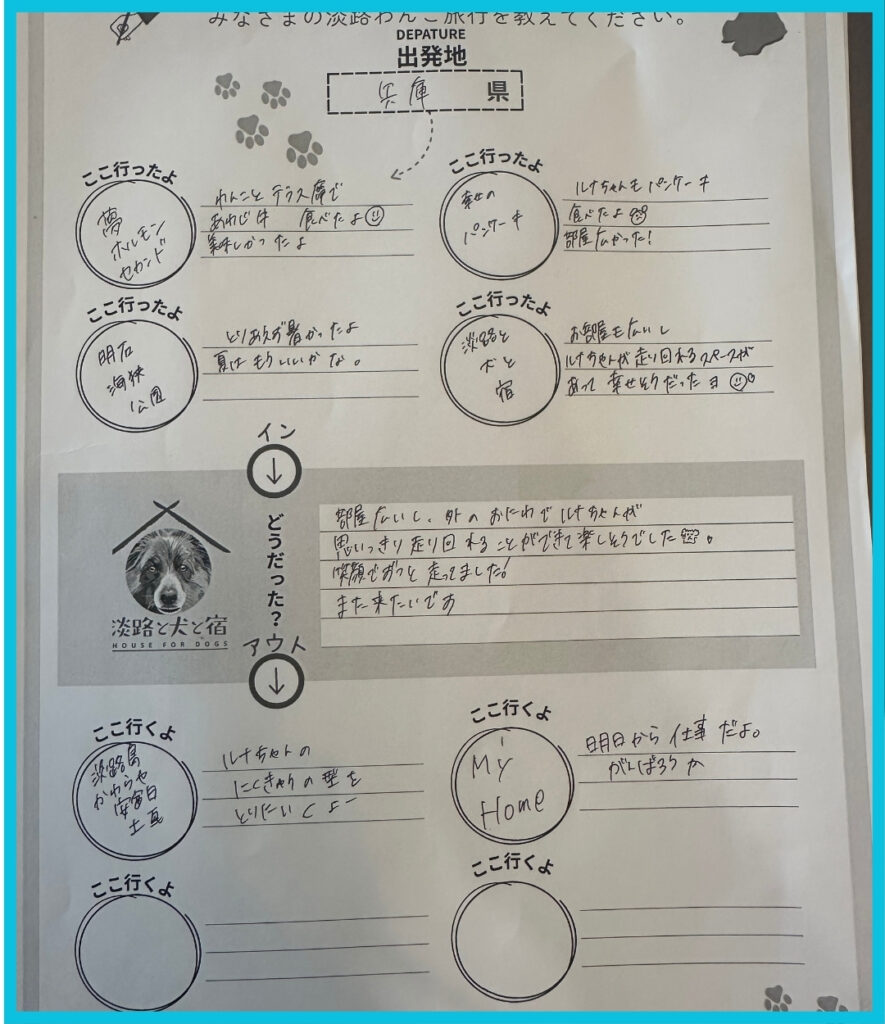 みなさまの淡路わんこ旅行を教えてください。
DEPATURE
出発地
兵庫 県
ここ行ったよ
夢
ホルモン
セカンド
わんこと テラス席で
あわじ牛 食べたよ
美味しかったよ
ここ行ったよ
幸せの
パンケーキ
ルナちゃんも パンケーキ
食べたよ
部屋広かった!
ここ行ったよ
明石
海峡
公園
とりあえず暑かったよ
夏は もういいかな。
ここ行ったよ
淡路と
犬と
宿
お部屋も広いし
ルナちゃんが走り回れるスペースが
あって 幸せそうだったヨ
イン
↓
どうだった?
アウト
↓
淡路と犬と宿
HOUSE FOR DOGS
部屋広いし、外のおにわでルナちゃんが
思いっきり走り回れることができて楽しそうでした。
笑顔でずっと走ってました!
また来たいです
ここ行くよ
淡路島
かわらや
土
ルナちゃんの
にくきゅうの型を
とりにいくよー
ここ行くよ
My
Home
明日から仕事だよ。
がんばろうか
ここ行くよ
ここ行くよ